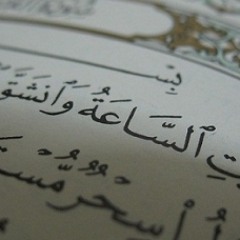 بِسْ
تِ ٱلسَّاعَةُ وَٱنشَقَّ
وا۟ سِحْرٌ مُّسْتَ